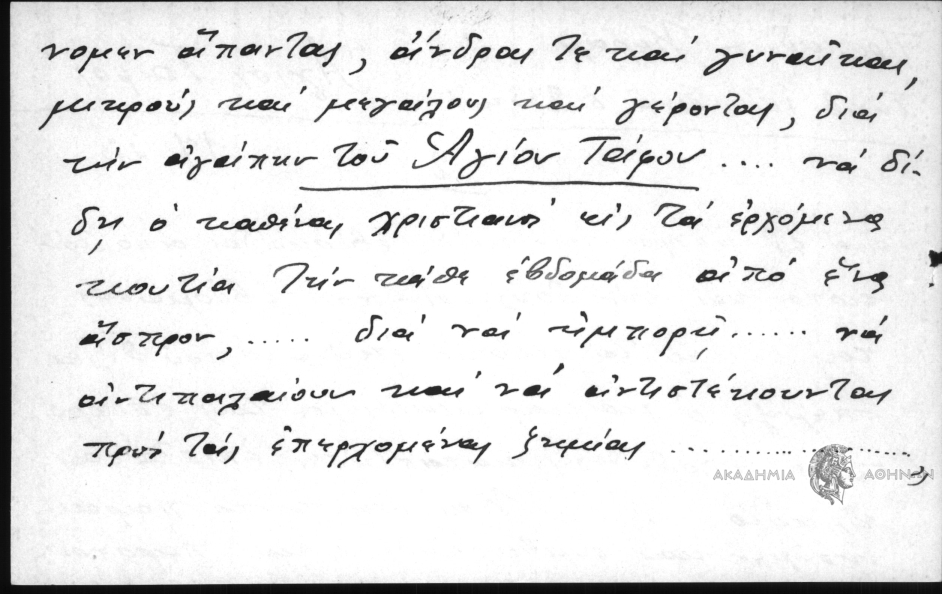 νομεν ἅπαντας, ἄνδρας τε καὶ γυναῖκας,
μικροὺς καὶ μεγάλους καὶ γέροντας, διὰ
τὴν ἀγάπην τοῦ Ἁγίου Τάφου .... νὰ δί-
δῃ ὁ καθένας χριστιανὸς εἰς τὰ ἐρχόμενα
κουτία τὴν κάθε ἑβδομάδα ἀπὸ ἕνα
ἄσπρον, ..... διὰ νὰ ἠμπορῇ ...... νὰ
ἀντιπαλαίουν καὶ νὰ ἀντιστέκουνται
πρὸς τὰς ἐπερχομένας ζημίας ....................
ΑΚΑΔΗΜΙΑ ΑΘΗΝΩΝ